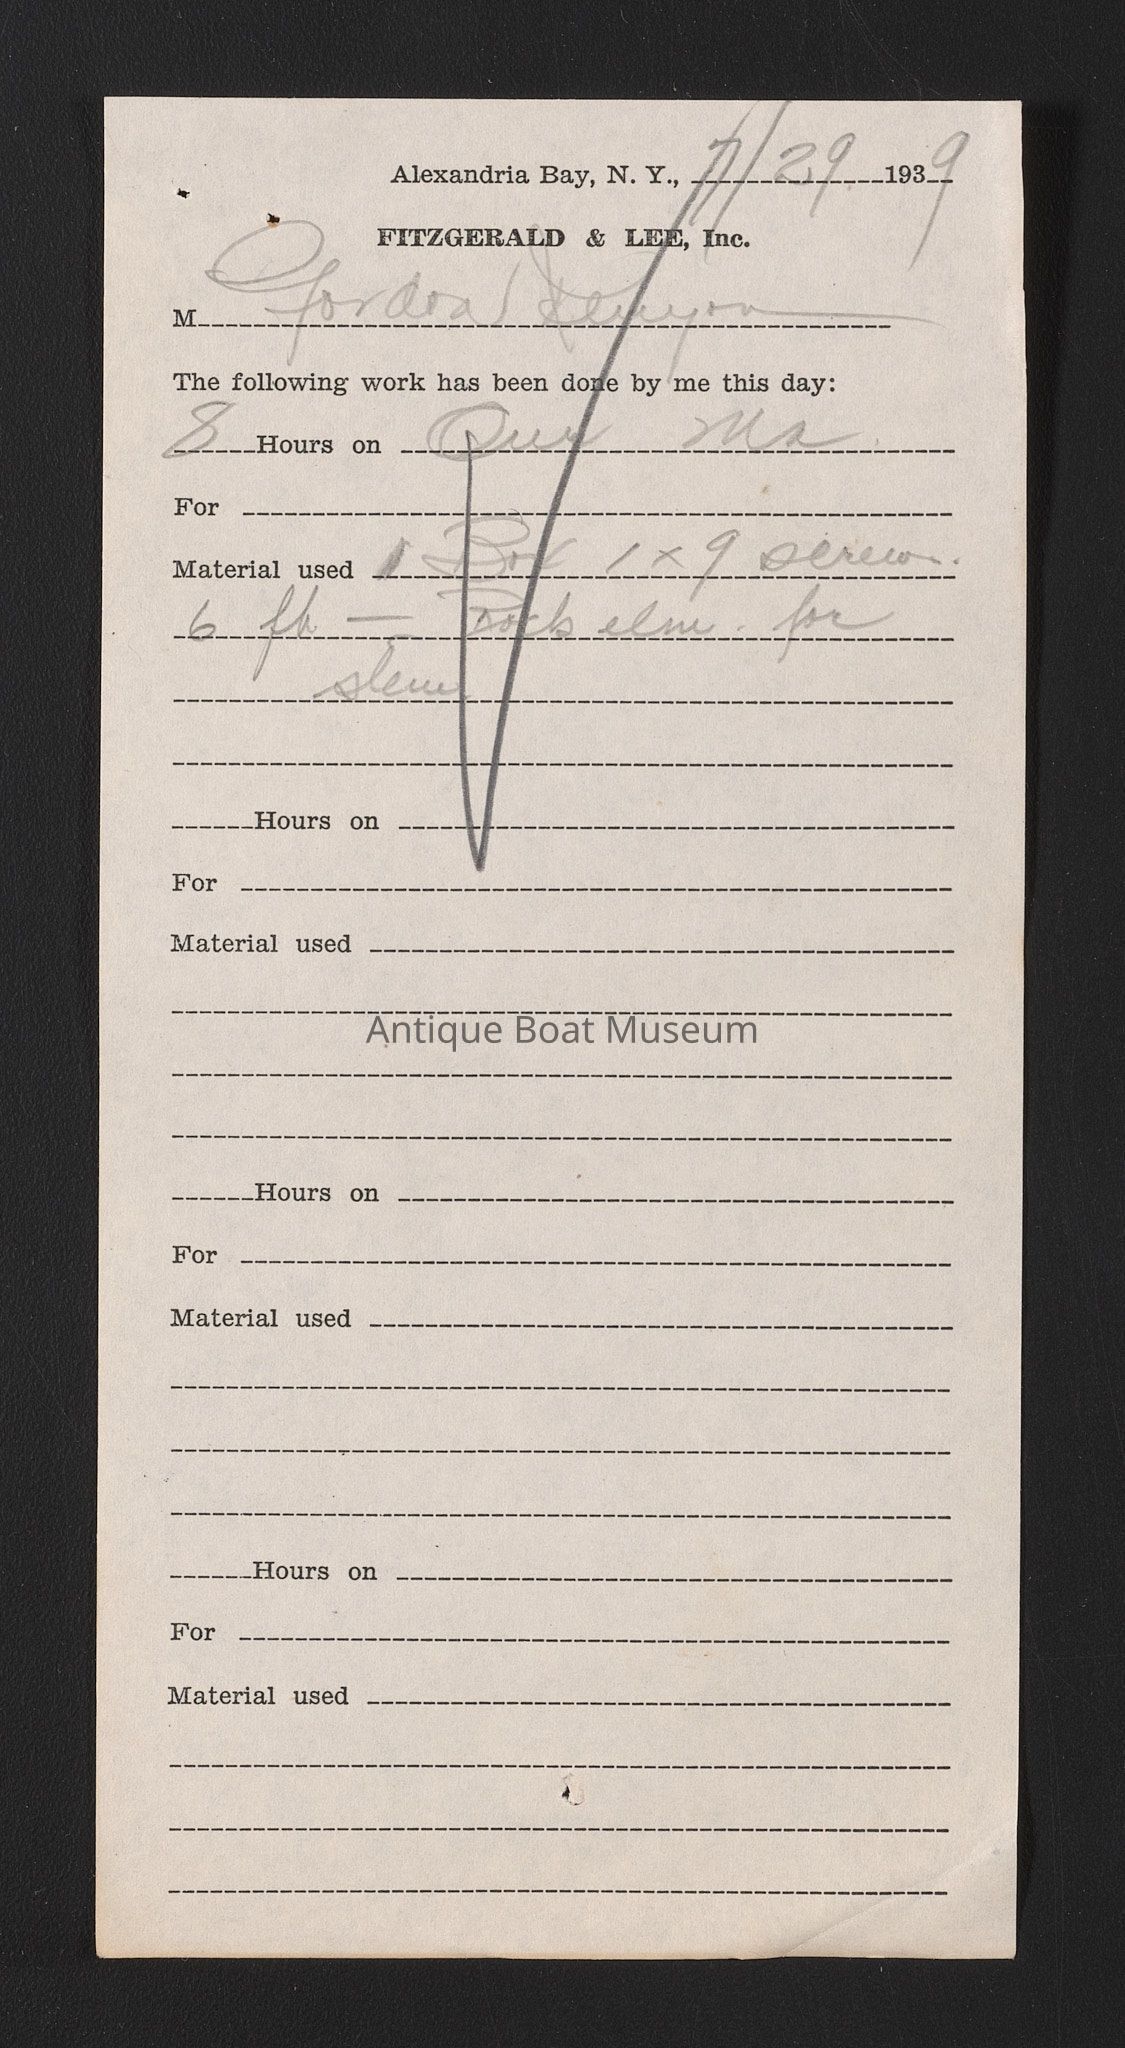 Alexandria Bay, N. Y., 7/29 1939
FITZGERALD & LEE, Inc.
M Gordon Kenyon
The following work has been done by me this day:
8 Hours on Our Ma
For
Material used 1 Box 1 x 9 screws.
6 ft — Rock elm. for
stem
Hours on
For
Material used
Antique Boat Museum
Hours on
For
Material used
Hours on
For
Material used